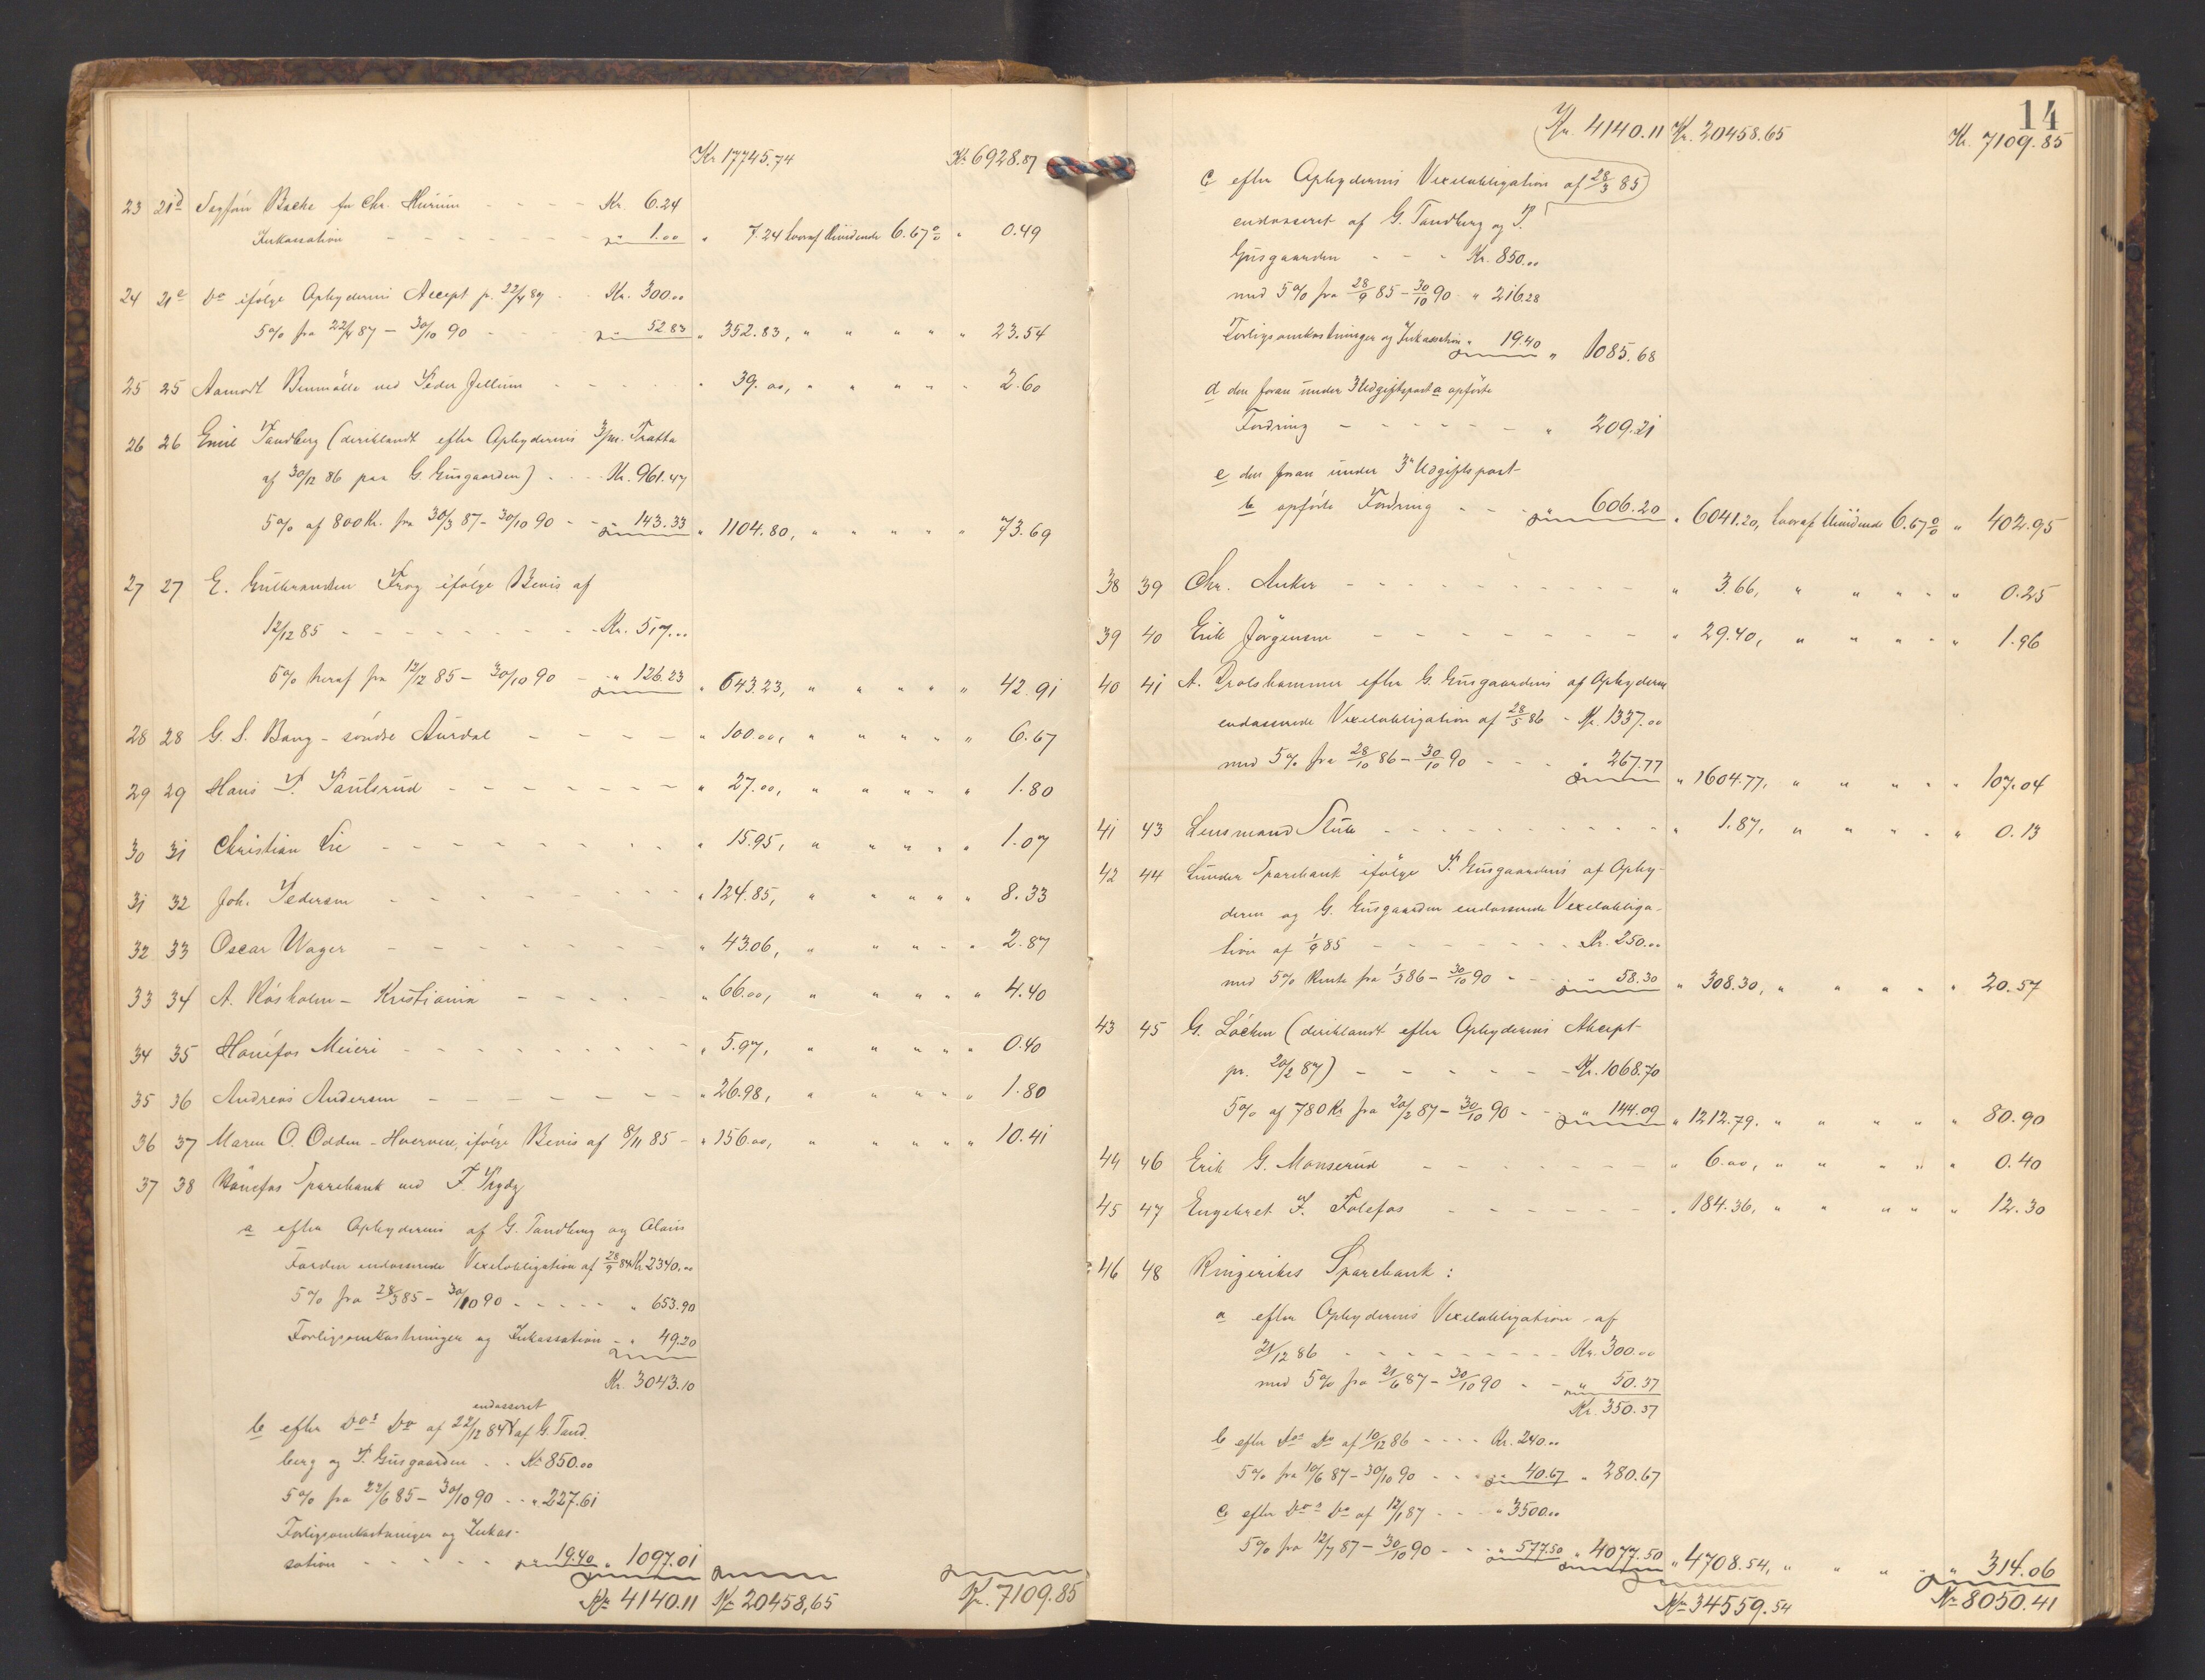 Kr 17745.74 Kr. 6928.87
23 21d Sagfører Bache for Chr. Hurum - - - - Kr. 6.24
Inkassation - - - - - - - " 1.00 " 7.24 hvoraf Dividende 6.67% " 0.49
24 21e Do ifølge Opbyderens Accept p. 22/4 87 - - Kr. 300.00
5% fra 22/4 87 - 30/10 90 - - - " 52.83 " 352.83, " " " " " 23.54
25 25 Aamodt Benmølle ved Peder Jellum - - - - - " 39.00, " " " " " 2.60
26 26 Emil Tandberg (deriblandt efter Opbyderens 3/m. Tratta
af 30/12 86 paa G. Gusgaarden) - - - Kr. 961.47
5% af 800 Kr. fra 30/3 87 - 30/10 90 - - " 143.33 " 1104.80, " " " " " 73.69
27 27 E. Gulbrandsen Frog ifølge Bevis af
12/12 85 - - - - - - - - - Kr. 517.00
5% heraf fra 12/12 85 - 30/10 90 - " 126.23 " 643.23, " " " " " 42.91
28 28 G. S. Bang - søndre Aurdal - - - - " 100.00, " " " " " 6.67
29 29 Hans P. Paulsrud - - - - - - - " 27.00, " " " " " 1.80
30 31 Christian Lie - - - - - - - - - " 15.95, " " " " 1.07
31 32 Joh. Pedersen - - - - - - - - " 124.85, " " " " " 8.33
32 33 Oscar Wager - - - - - - - " 43.06, " " " " " 2.87
33 34 A. Røsholm - Kristiania - - - - - " 66.00, " " " " " 4.40
34 35 Hønefos Meieri - - - - - - - - - " 5.97, " " " " " 0.40
35 36 Andreas Andersen - - - - - - - " 26.98, " " " " " 1.80
36 37 Maren O. Odden - Hverven, ifølge Bevis af 8/11 85 - " 156.00, " " " " " 10.41
37 38 Hønefos Sparebank ved F. Frydz
a efter Opbyderens af G. Tandberg og Claus
Forden endosserede Vexelobligation af 28/9 84 Kr 2340.00
5% fra 28/3 85 - 30/10 90 - - - - - " 653.90
Forligsomkostninger og Inkassation - " 49.20
Kr. 3043.10
endosseret
b efter Dos Do af 22/12 84 af G. Tand-
berg og P. Gusgaarden - - Kr 850.00
5% fra 22/6 85 - 30/10 90 - - " 227.61
Forligsomkostninger og Inkas-
sation - - - - - " 19.40 " 1097.01
Kr. 4140.11 Kr 20458,65 Kr. 7109.85
14
Kr. 4140.11 Kr. 20458.65 Kr. 7109.85
c efter Opbyderens Vexelobligation af 28/3 85
endosseret af G. Tandberg og P.
Gusgaarden - - - Kr. 850.00
med 5% fra 28/9 85 - 30/10 90 - " 216.28
Forligsomkostninger og Inkassation " 19.40 " 1085.68
d den foran under 3 Udgiftspost a opførte
Fordring - - - - - - " 209.21
e den foran under 3 Udgiftspost
b opførte Fordring - - - " 606.20 " 6041.20, hvoraf Dividende 6.67% " 402.95
38 39 Chr. Anker - - - - - - - - - - " 3.66, " " " " " 0.25
39 40 Erik Jørgensen - - - - - - - - " 29.40, " " " " " 1.96
40 41 A. Drolshammer efter G. Gusgaardens af Opbyderen
endosserede Vexelobligation af 28/5 86 - Kr. 1337.00
med 5% fra 28/10 86 - 30/10 90 - - - " 267.77 " 1604.77, " " " " " 107.04
41 43 Lensmand Stub - - - - - - - - - - " 1.87, " " " " " 0.13
42 44 Lunder Sparebank ifølge P. Gusgaardens af Opby-
deren og G. Gusgaarden endosserede Vexelobliga-
tion af 1/9 85 - - - - - - - - Kr. 250.00
med 5% Rente fra 1/3 86 - 30/10 90 - - - " 58.30 " 308.30, " " " " " 20.57
43 45 G. Løcken (deriblandt efter Opbyderens Akcept
pr. 20/2 87) - - - - - - - Kr. 1068.70
5% af 780 Kr fra 20/2 87 - 30/10 90 - - " 144.09 " 1212.79. " " " " " 80.90
44 46 Erik G. Monserud - - - - - - - - " 6.00, " " " " " 0.40
45 47 Engebret F. Folefos - - - - - - - " 184.36, " " " " " 12.30
46 48 Ringerikes Sparebank:
a efter Opbyderens Vexelobligation af
21/12 86 - - - - - - - - - Kr. 300.00
med 5% fra 21/6 87 - 30/10 90 - - " 50.37
Kr. 350.37
b efter Dos Do af 10/12 86 - - - - Kr. 240.00
5% fra 10/6 87 - 30/10 90 - - - " 40.67 " 280.67
c efter Dos Do af 12/1 87 - - - " 3500.00
5% fra 12/7 87 - 30/10 90 - - - " 577.50 " 4077.50 " 4708.54, " " " " " 314.06
Kr 34559.54 Kr 8050.41